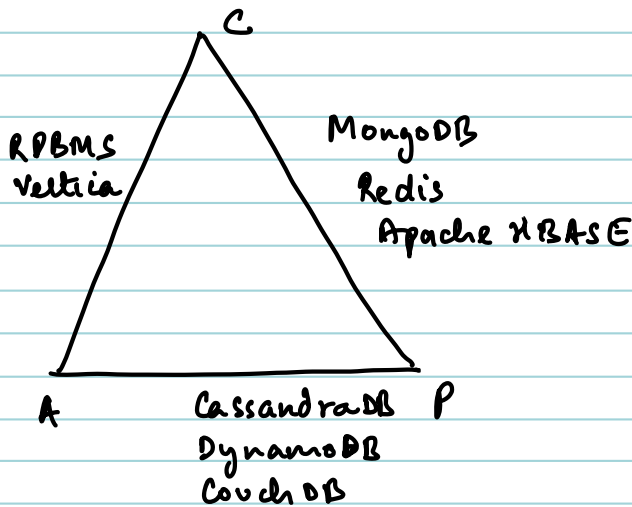 C
RDBMS
Vertica
MongoDB
Redis
Apache HBASE
A
P
CassandraDB
DynamoDB
CouchDB